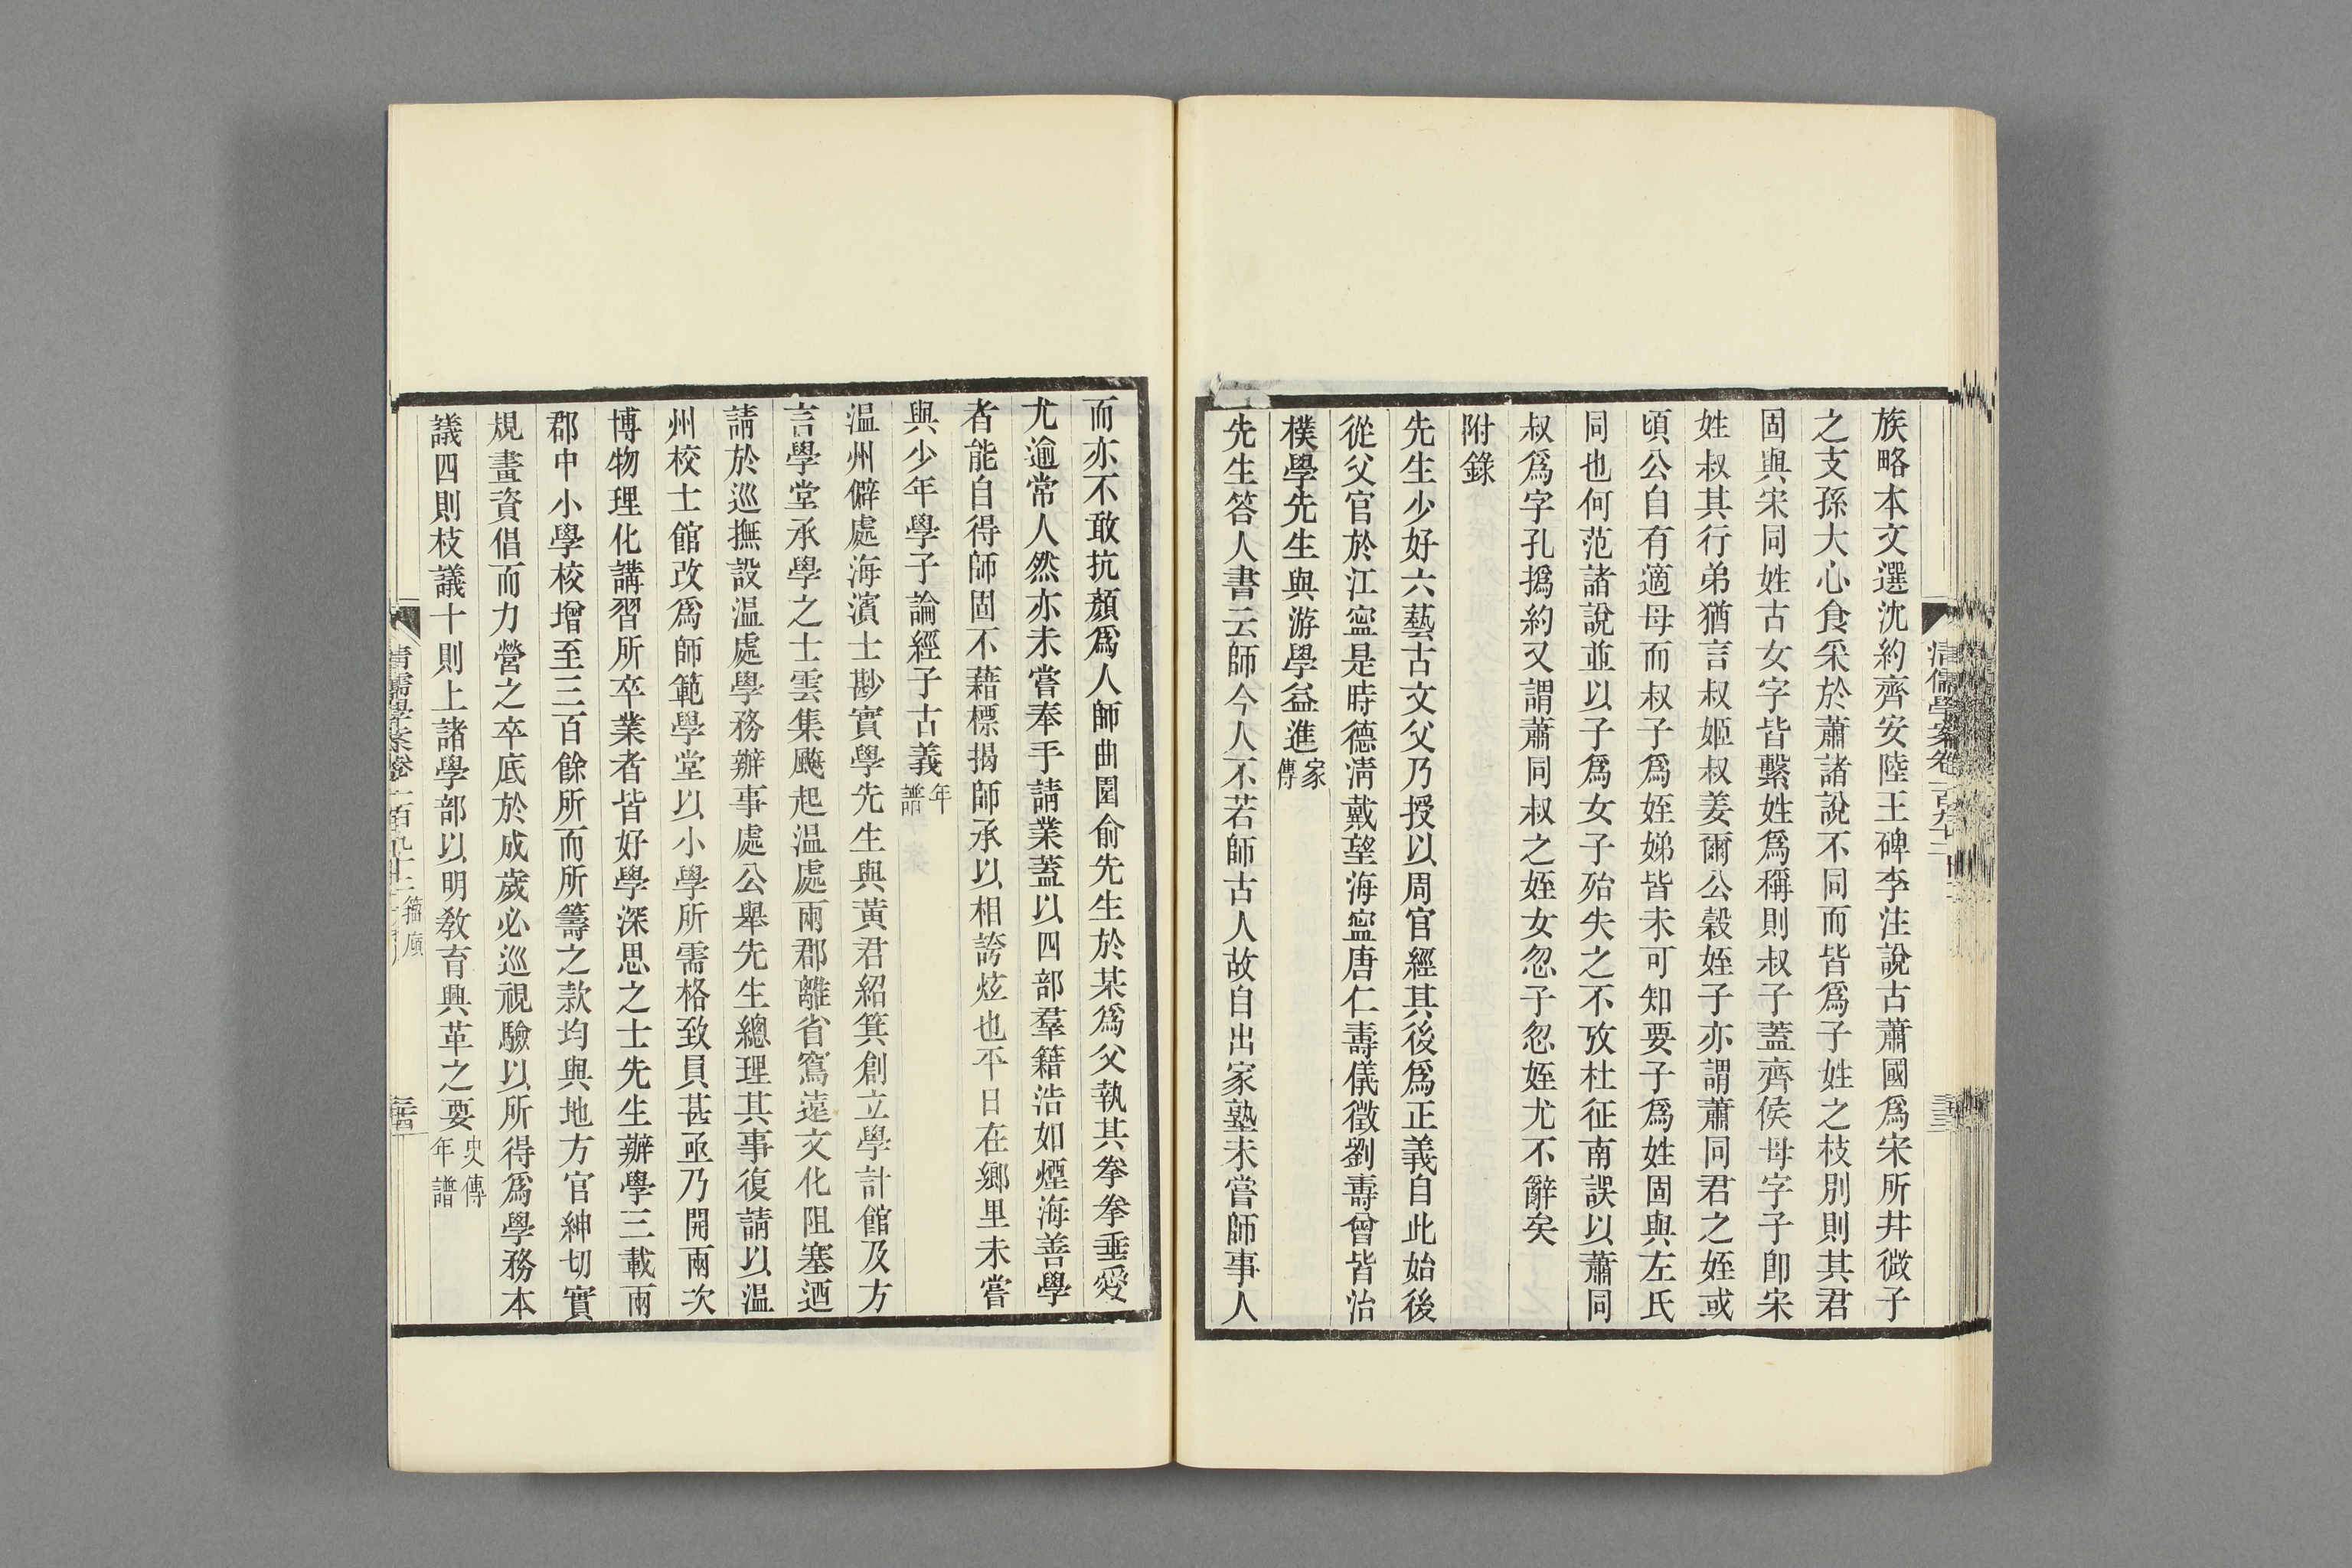 族略本文選沈約齊安陸王碑李注說古蕭國爲宋所幷微子
之支孫大心食采於蕭諸說不同而皆爲子姓之枝別則其君
固與宋同姓古女字皆繫姓爲稱則叔子蓋齊侯母字子卽宋
姓叔其行弟猶言叔姬叔姜爾公穀姪子亦謂蕭同君之姪或
頃公自有適母而叔子爲姪娣皆未可知要子爲姓固與左氏
同也何范諸說並以子爲女子殆失之不攷杜征南誤以蕭同
叔爲字孔撝約又謂蕭同叔之姪女忽子忽姪尤不辭矣
附錄
先生少好六藝古文父乃授以周官經其後爲正義自此始後
從父官於江寧是時德淸戴望海寧唐仁壽儀徵劉壽曾皆治
樸學先生與游學益進家傳
先生答人書云師今人不若師古人故自出家塾未嘗師事人
而亦不敢抗顏爲人師曲園俞先生於某爲父執其拳拳垂愛
尤逾常人然亦未嘗奉手請業蓋以四部羣籍浩如煙海善學
者能自得師固不藉標揭師承以相誇炫也平日在鄉里未嘗
與少年學子論經子古義年譜
温州僻處海濱士尟實學先生與黃君紹箕創立學計館及方
言學堂承學之士雲集飈起温處兩郡離省窵遠文化阻塞迺
請於巡撫設温處學務辦事處公舉先生總理其事復請以温
州校士館改爲師範學堂以小學所需格致員甚亟乃開兩次
博物理化講習所卒業者皆好學深思之士先生辦學三載兩
郡中小學校增至三百餘所而所籌之款均與地方官紳切實
規畫資倡而力營之卒底於成歲必巡視驗以所得爲學務本
議四則枝議十則上諸學部以明敎育興革之要史傳年譜
清儒學案卷一百九十二
籀廎